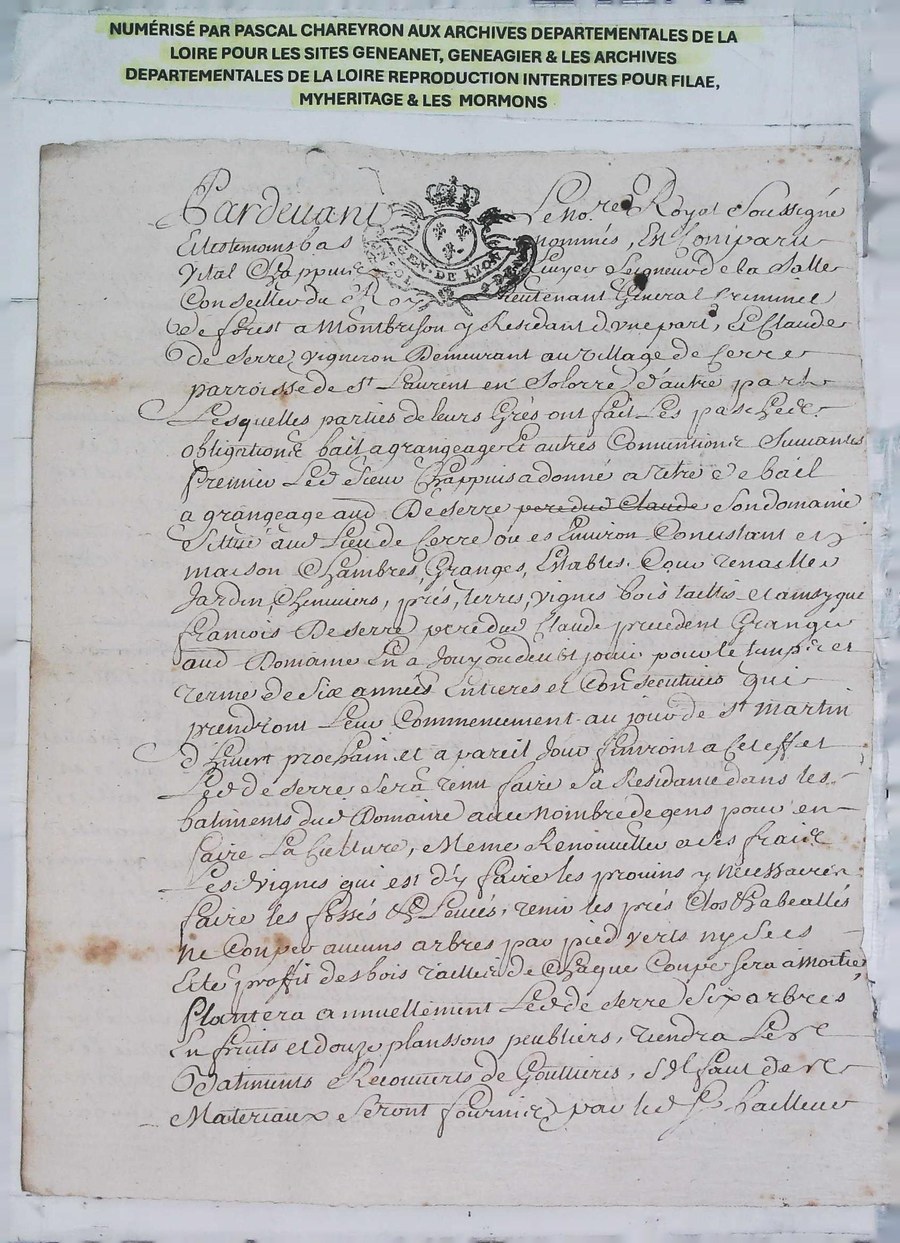 NUMÉRISÉ PAR PASCAL CHAREYRON AUX ARCHIVES DEPARTEMENTALES DE LA
LOIRE POUR LES SITES GENEANET, GENEAGIER & LES ARCHIVES
DEPARTEMENTALES DE LA LOIRE REPRODUCTION INTERDITES POUR FILAE,
MYHERITAGE & LES MORMONS
Pardevant Le no.re Royal Soussigné
Et testemoins bas nommés, En Comparu
GEN·DE LYON
Vital Chappuis Ecuyer Seigneur de la Salle
Conseiller du Roy Lieutenant General Criminel
de forest a Montbrison y Residant d'vne part, Et Claude
de Serre vigneron Demeurant au village de Cerre
parroisse de St Laurent en Solorre d'autre part
Lesquelles parties de leurs Grés ont fait Les
obligations bail a grangeage Et autres Conventions Suivantes
Premier Led Sieur Chappuis a donné a titre de bail
a grangeage aud De Serre pere dud Claude Son domaine
Sittué aud Lieu de Cerre ou es Environ Consistant en
maison Chambres, Granges, Estables, Cour
Jardin, Cheneviers, prés, terres, vignes bois taillis et ainsy que
francois De Serre pere dud Claude precedent Granger
aud Domaine En a Jouy ou deubt jouir pour le temps et
terme de Six années Entieres et Consecutives qui
prendront Leur Commencement au jour de St Martin
d'hivert prochain et a pareil Jour finiront a Cet effet
Led de Serre Sera tenu faire Sa Residance dans les
batiments dud Domaine avec nombre de gens pour en
faire La Culture, Meme Renouveller a Ses fraix
Les Vignes qui est d'y faire les provins y necessaires
faire les fossés tenir les prés Clos
ne Couper aucuns arbres par pied verts ny Secs
Et le proffit des bois de Chaque Coupe Sera a moitié
Plantera annuellement Led de Serre Six arbres
En fruits et douze planssons peubliers, tiendra Les
Batiments Recouverts de Gouttieres, S'il faut des
Materiaux Seront fournies par led Sr bailleur